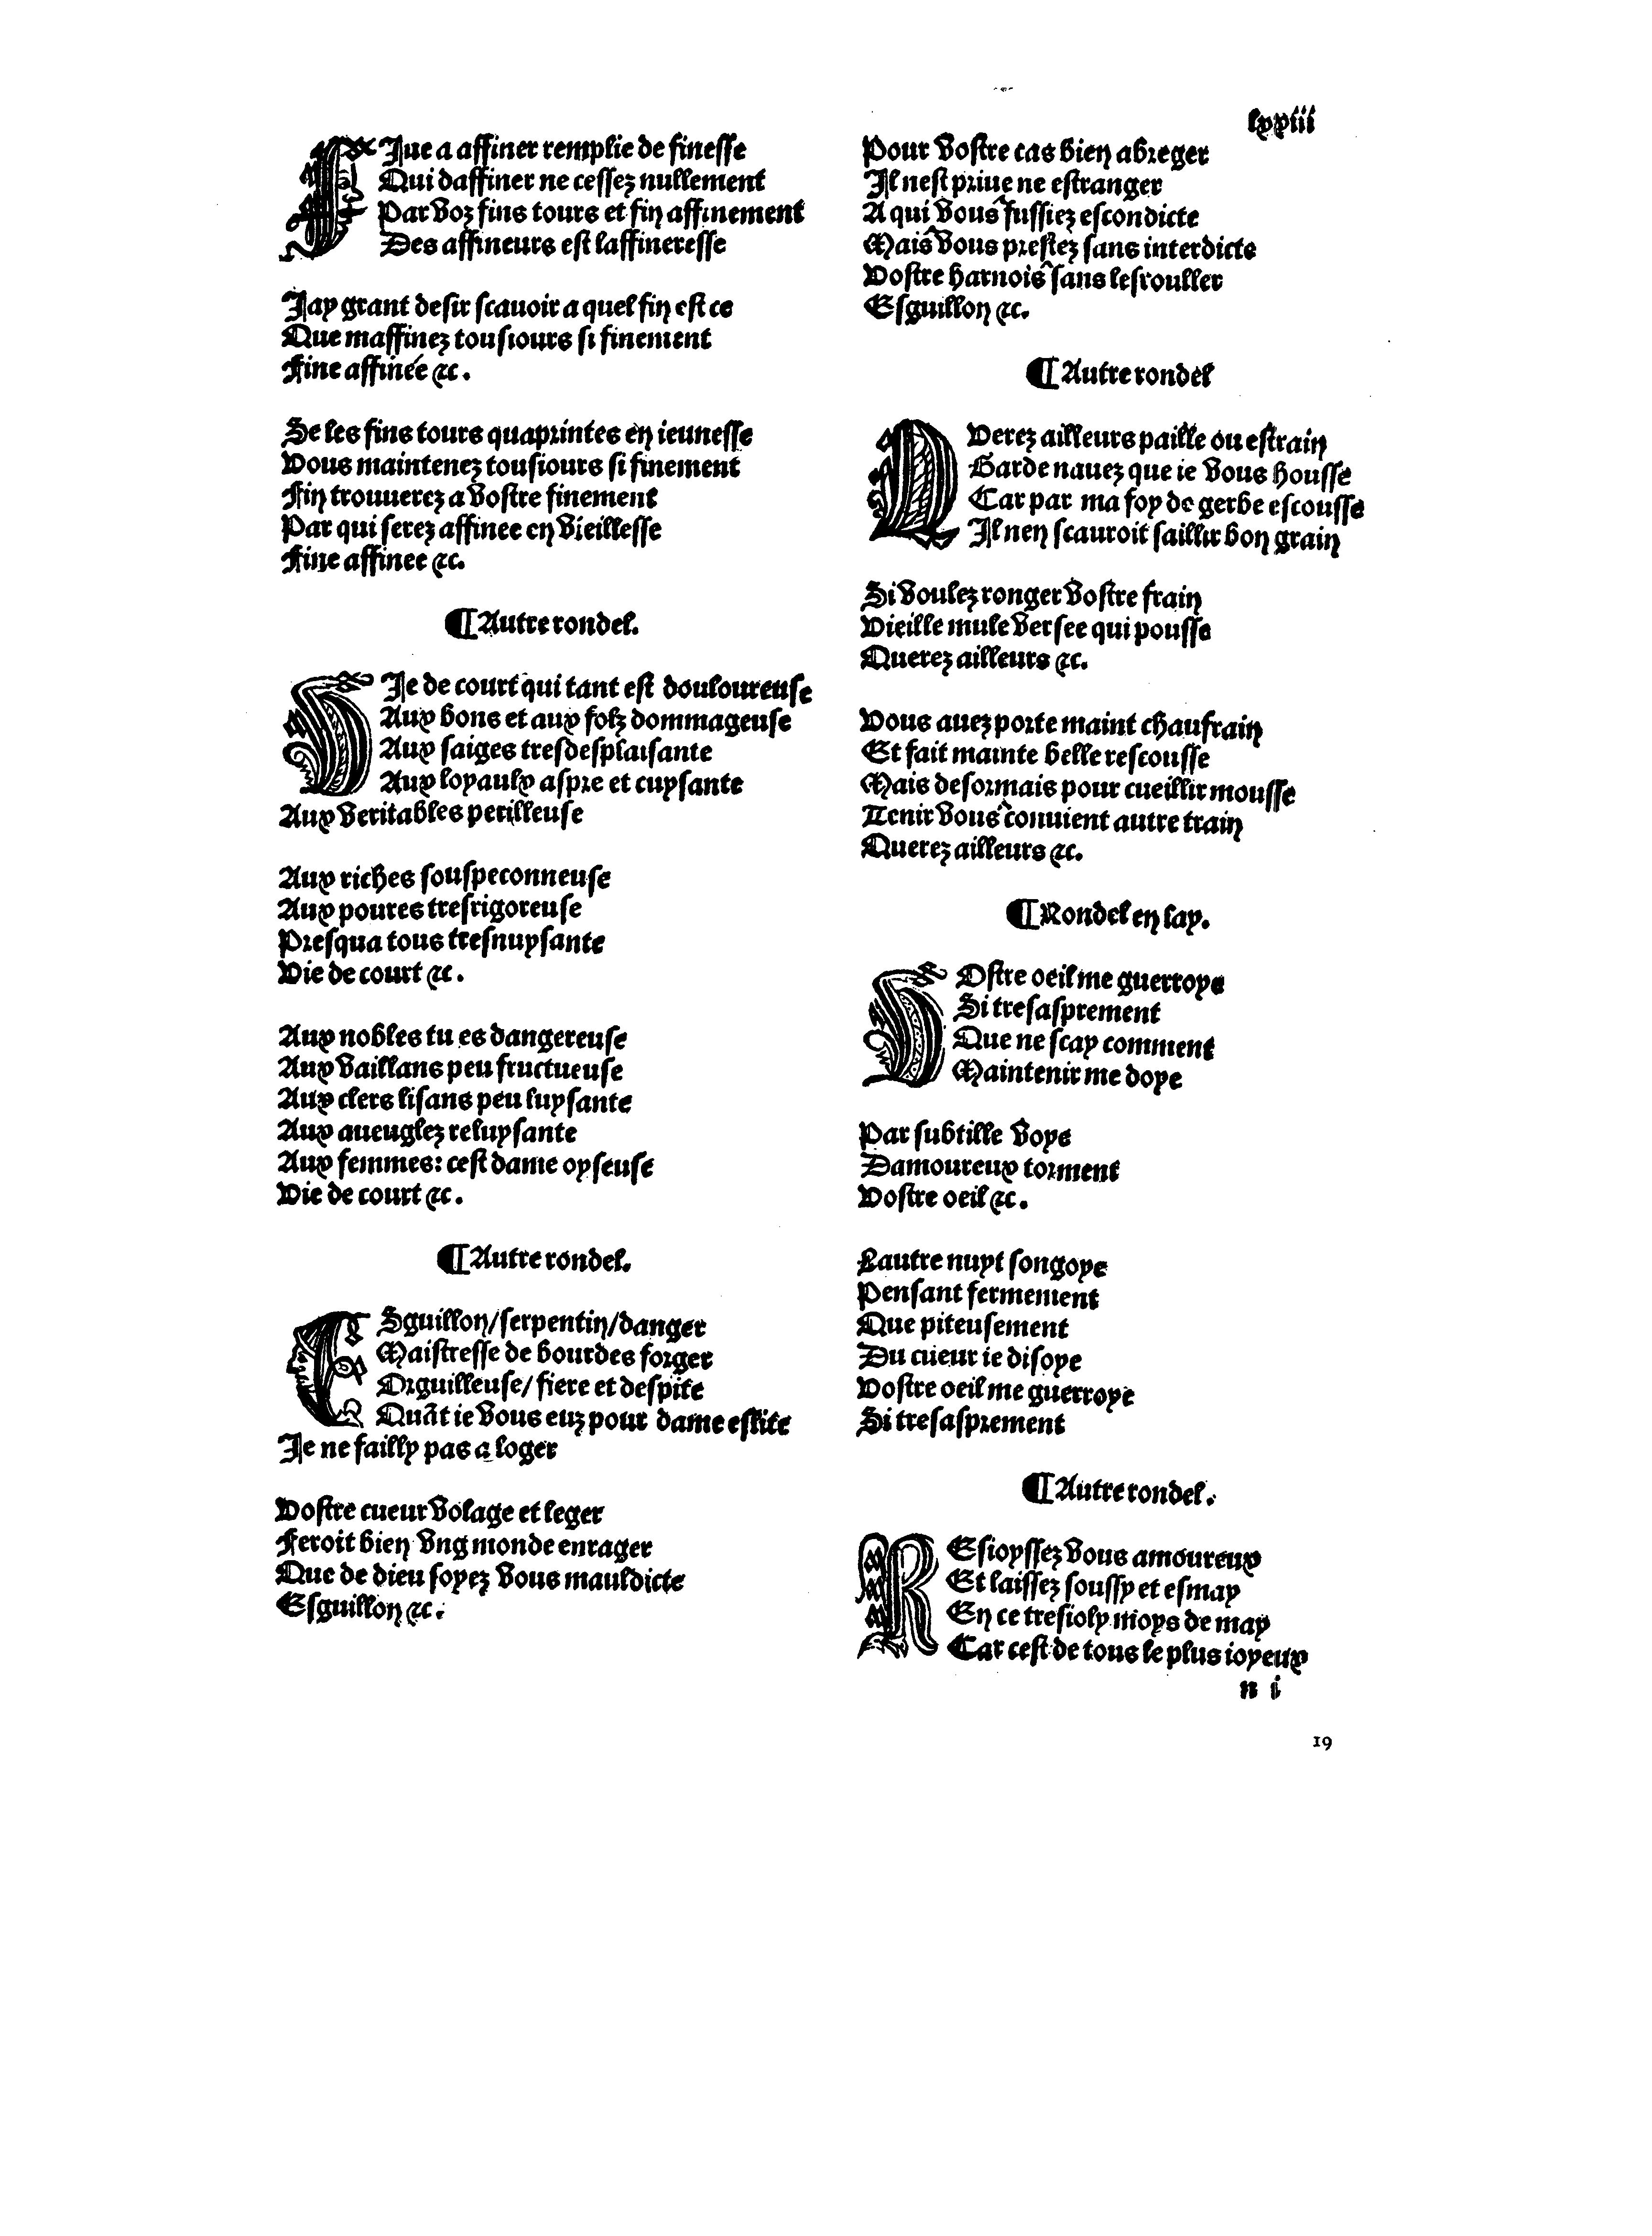 lxxiii
FIne a affiner remplie de finesse
Qui daffiner ne cessez nullement
Par voz fins tours et fin affinement
Des affineurs est laffineresse
Jay grant desir scauoir a quel fin est ce
Que maffinez tousiours si finement
Fine affinée &c.
Se les fins tours quaprintes en ieunesse
Vous maintenez tousiours si finement
Fin trouuerez a vostre finement
Par qui serez affinee en vieillesse
Fine affinee &c.
¶Autre rondel.
VIe de court qui tant est douloureuse
Aux bons et aux folz dommageuse
Aux saiges tresdesplaisante
Aux loyaulx aspre et cuysante
Aux veritables perilleuse
Aux riches souspeconneuse
Aux poures tresrigoreuse
Presqua tous tresnuysante
Vie de court &c.
Aux nobles tu es dangereuse
Aux vaillans peu fructueuse
Aux clers lisans peu luysante
Aux aueuglez reluysante
Aux femmes: cest dame oyseuse
Vie de court &c.
¶Autre rondel.
ESguillon/serpentin/danger
Maistresse de bourdes forger
Orguilleuse/ fiere et despite
Quãt ie vous euz pour dame eslite
Je ne failly pas a loger
Vostre cueur volage et leger
Feroit bien vng monde enrager
Que de dieu soyez vous mauldicte
Esguillon &c.
Pour vostre cas bien abreger
Il nest priue ne estranger
A qui vous fussiez escondicte
Mais vous prestez sans interdicte
Vostre harnois sans lesrouller
Esguillon &c.
¶Autre rondel
QVerez ailleurs paille ou estrain
Garde nauez que ie vous housse
Car par ma foy de gerbe escousse
Il nen scauroit saillir bon grain
Si voulez ronger vostre frain
Vieille mule versee qui pousse
Querez ailleurs &c.
Vous auez porte maint chaufrain
Et fait mainte belle rescousse
Mais desormais pour cueillir mousse
Tenir vous conuient autre train
Querez ailleurs &c.
¶Rondel en lay.
VOstre oeil me guerroye
Si tresasprement
Que ne scay comment
Maintenir me doye
Par subtille voye
Damoureux torment
Vostre oeil &c.
Lautre nuyt songoye
Pensant fermement
Que piteusement
Du cueur ie disoye
Vostre oeil me guerroye
Si tresasprement
¶Autre rondel.
REsioyssez vous amoureux
Et laissez soussy et esmay
En ce tresioly moys de may
Car cest de tous le plus ioyeux
n i
19